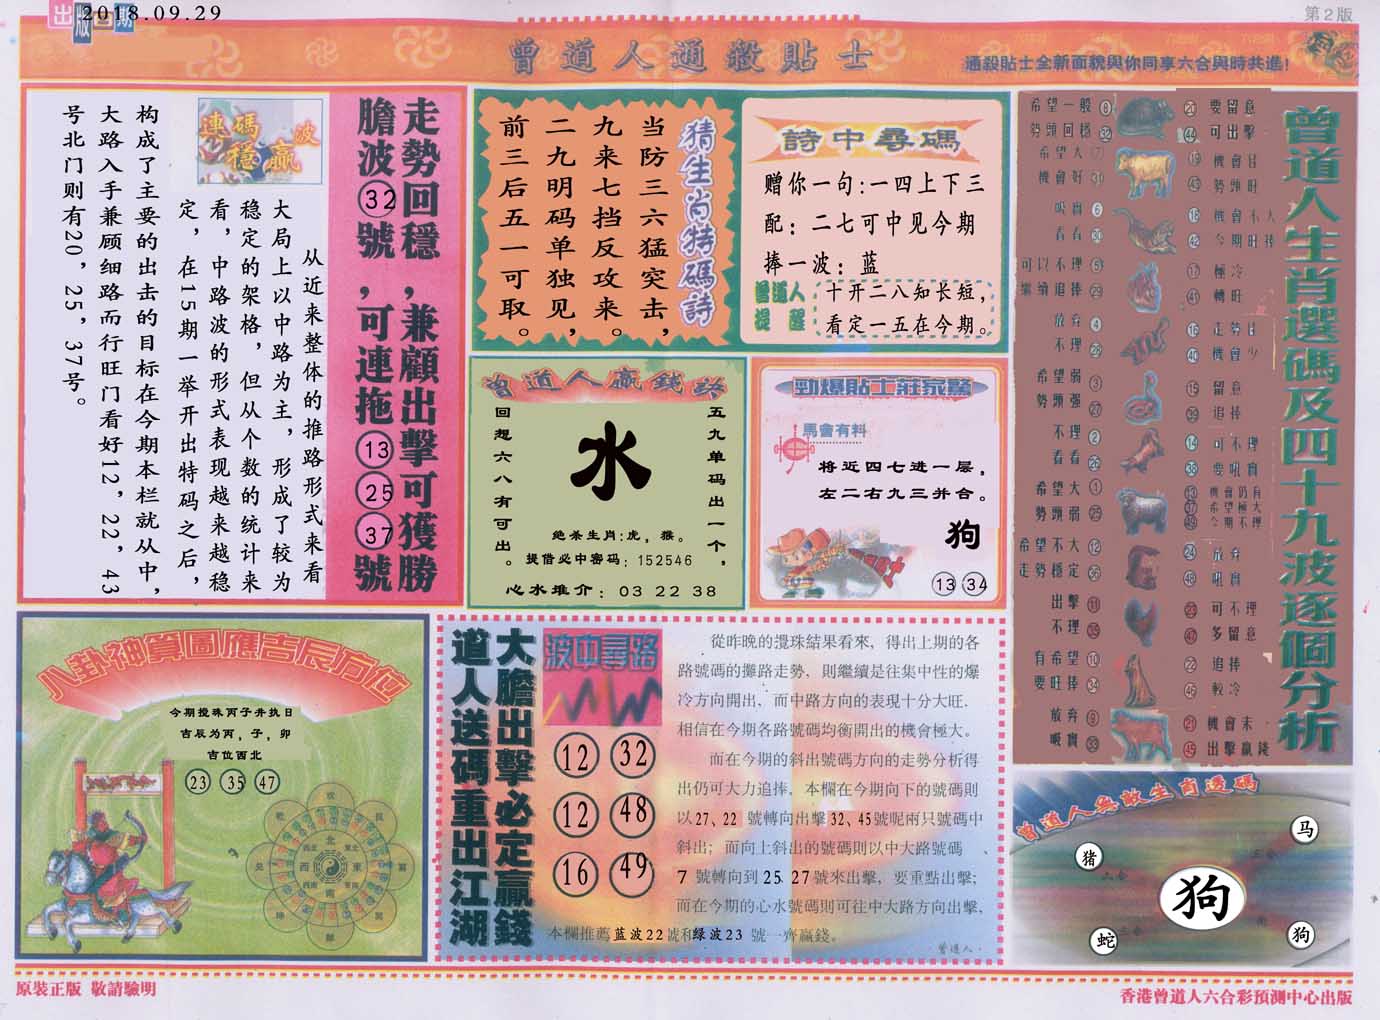 出版日期
2018.09.29
第2版
曾道人通殺貼士
通殺貼士全新面貌與你同享六合與時共進!
走勢回穩,兼顧出擊可獲勝
膽波32號,可連拖13 25 37號
連碼波
穩贏
从近来整体的推路形式来看
大局上以中路为主,形成了较为
稳定的架格,但从个数的统计来
看,中路波的形式表现越来越稳
定,在15期一举开出特码之后,
构成了主要的出击的目标在今期本栏就从中,
大路入手兼顾细路而行旺门看好12,22,43
号北门则有20,25,37号。
猜生肖特碼詩
当防三六猛突击,
九来七挡反攻来。
二九明码单独见,
前三后五一可取。
詩中尋碼
赠你一句:一四上下三
配:二七可中见今期
捧一波:蓝
曾道人
提醒
十开二八知长短,
看定一五在今期。
曾道人贏錢詩
五九单码出一个,
回想六八有可出。
水
绝杀生肖:虎,猴。
提借必中密码:152546
心水推介:03 22 38
勁爆貼士莊家驚
馬會有料
将近四七进一层,
左二右九三并合。
狗
13 34
八卦神算圖應吉辰方位
今期搅珠丙子井执日
吉辰为丙,子,卯
吉位西北
23 35 47
大膽出擊必定贏錢
道人送碼重出江湖
波中尋路
12 32
12 48
16 49
從昨晚的攪珠結果看來,得出上期的各
路號碼的攤路走勢,則繼續是往集中性的爆
冷方向開出,而中路方向的表現十分大旺.
相信在今期各路號碼均衡開出的機會極大。
而在今期的斜出號碼方向的走勢分析得
出仍可大力追捧,本欄在今期向下的號碼則
以27、22 號轉向出擊32、45號呢兩只號碼中
斜出;而向上斜出的號碼則以中大路號碼、
7 號轉向到25 27號來出擊,要重點出擊;
而在今期的心水號碼則可往中大路方向出擊,
本欄推薦蓝波22號和绿波23 號一齊贏錢。
曾道人·
曾道人生肖選碼及四十九波逐個分析
希望一般 8 20 要留意
勢頭回穩 32 44 可出擊
希望大 7 19 機會佳
機會好 31 43 勢頭旺
吼實 6 18 機會不大
看看 30 42 今期旺捧
可以不理 5 17 極冷
繼續追捧 29 41 轉旺
放弃 4 16 走勢佳
不理 28 40 機會少
希望弱 3 15 留意
勢頭强 27 39 追捧
不理 2 14 可不理
看看 26 38 要吼實
希望大 1 13 機會仍有
37 希望極大
勢頭弱 25 49 今期不理
希望不大 12 24 放弃
走勢穩定 36 48 吼實
出擊 11 23 可不理
不理 35 47 多留意
有希望 10 22 追捧
要旺捧 34 46 較冷
放弃 9 21 機會末
吼實 33 45 出擊贏錢
曾道人無敵生肖透碼
马
猪
狗
蛇
狗
原裝正版 敬請驗明
香港曾道人六合彩預測中心出版